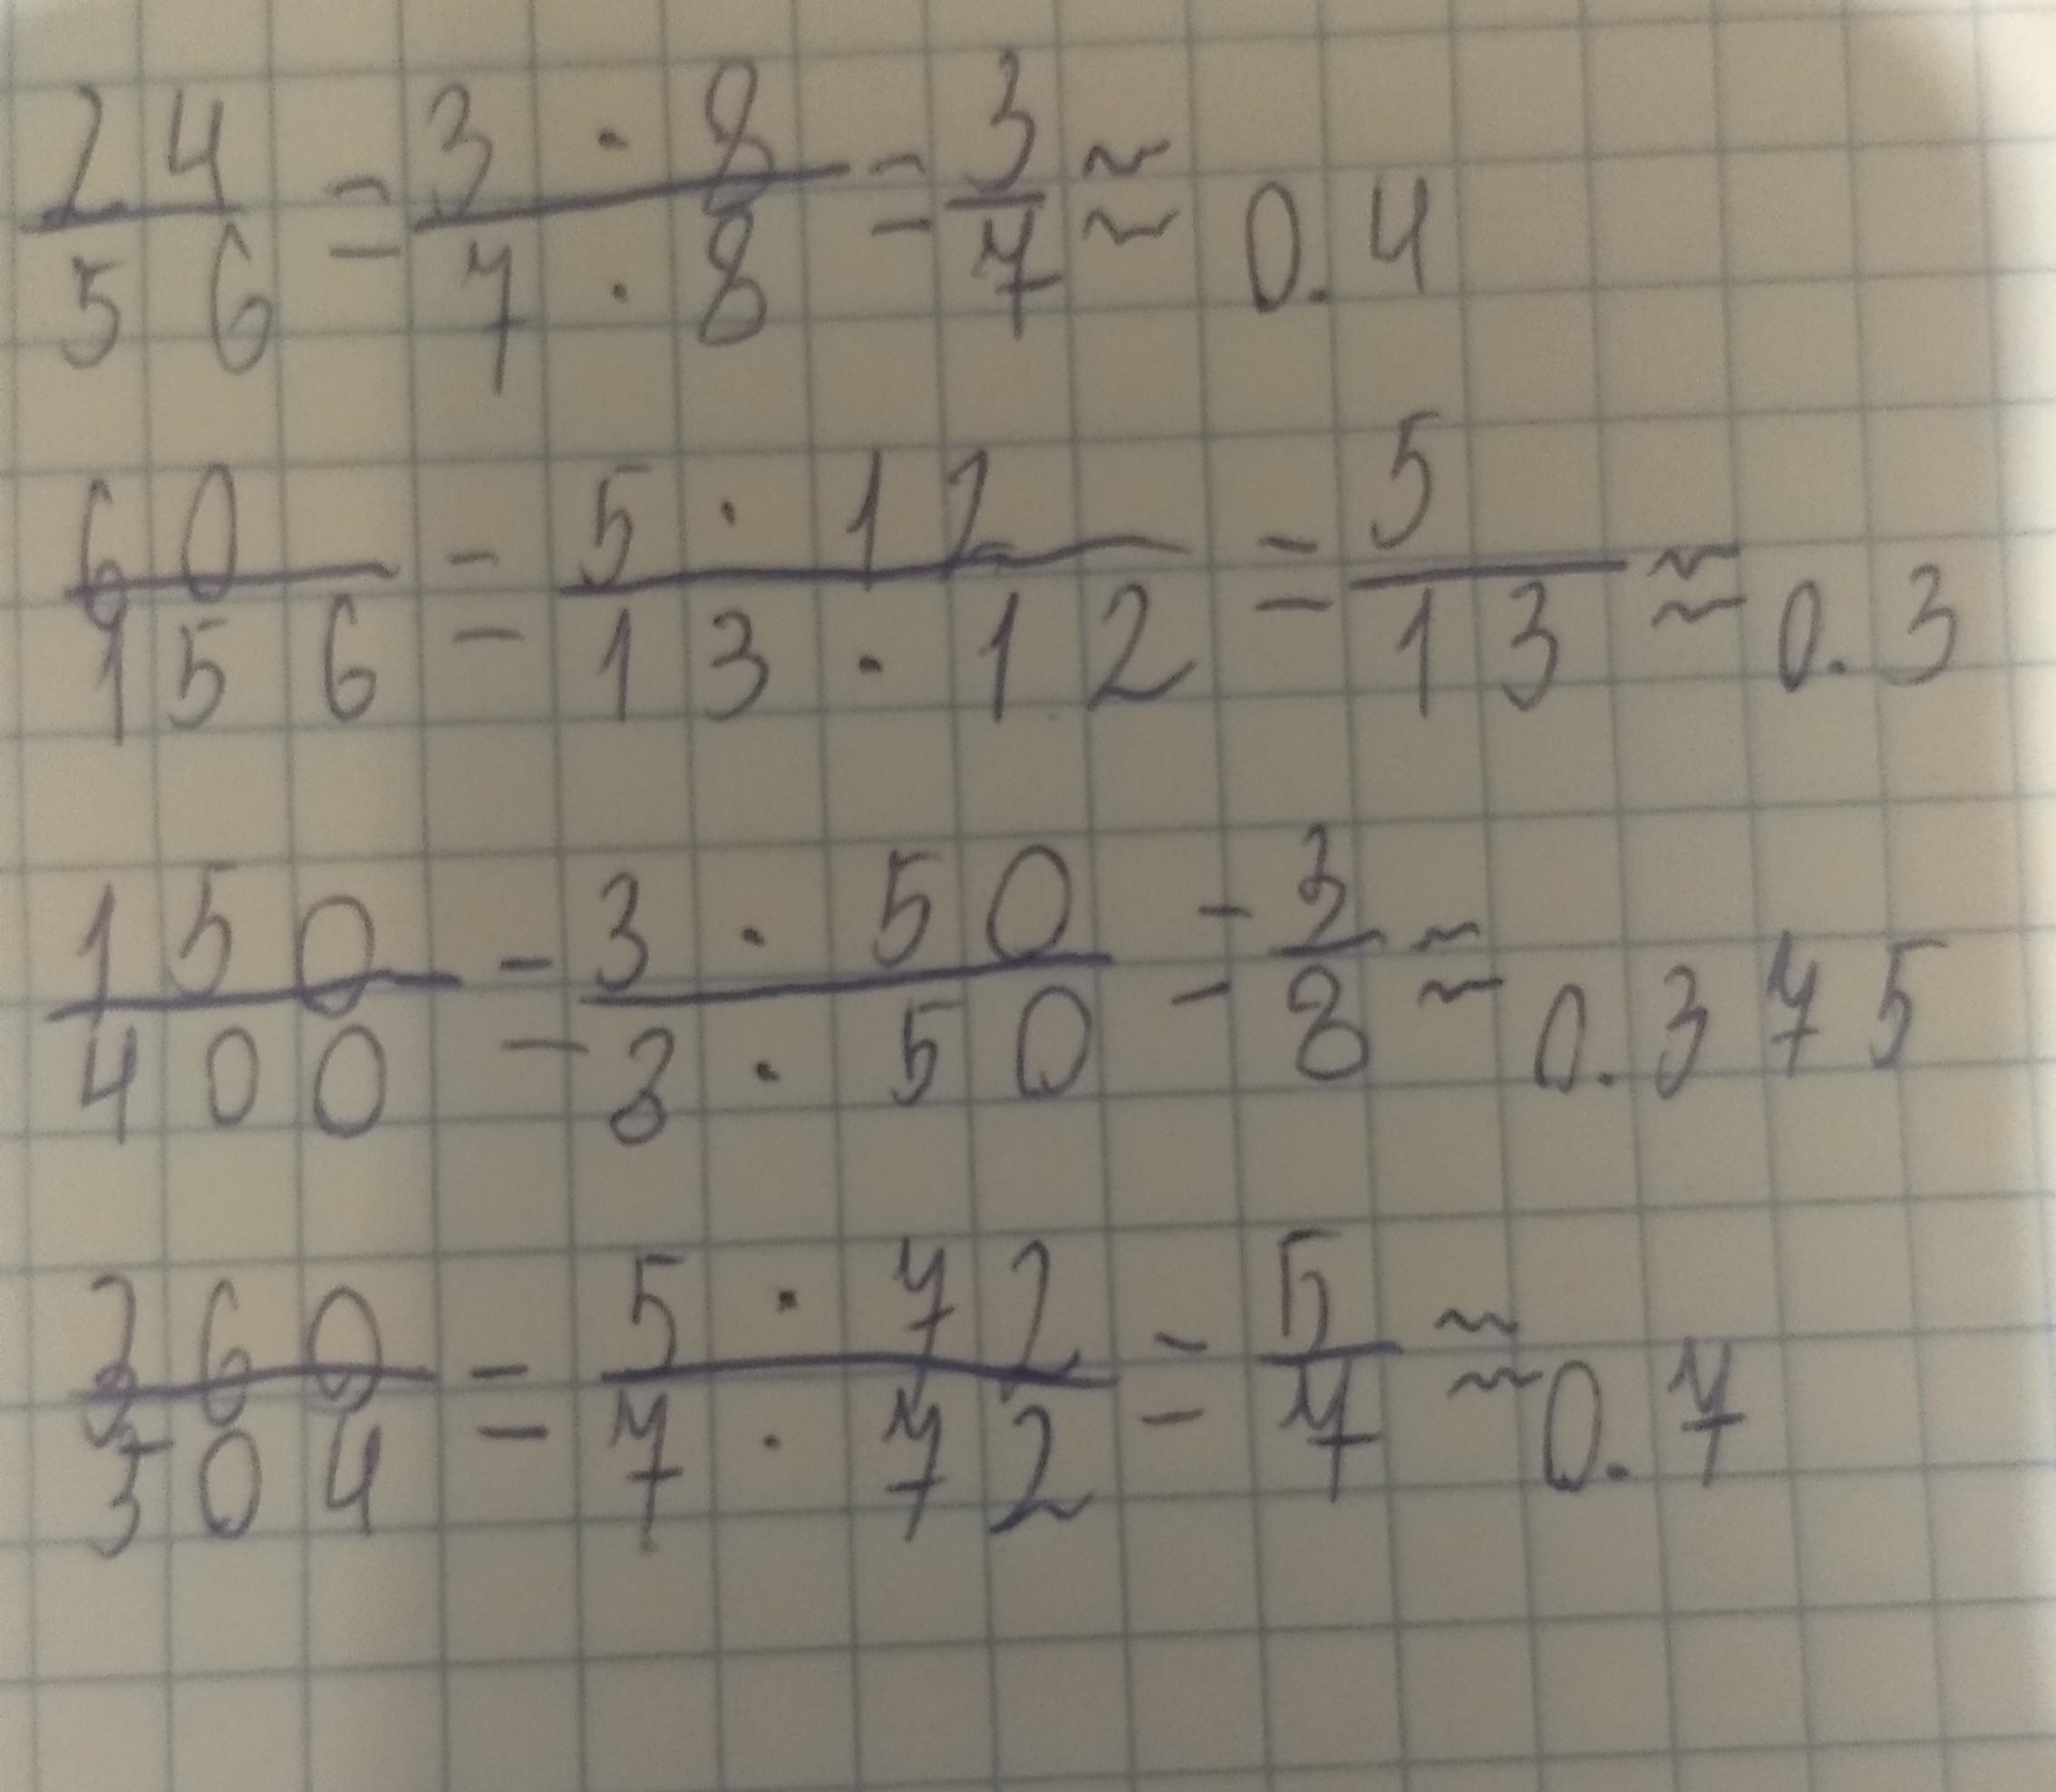 24/56 = 3 · 8/7 · 8 = 3/7 ≈ 0.4
60/156 = 5 · 12/13 · 12 = 5/13 ≈ 0.3
150/400 = 3 · 50/8 · 50 = 3/8 ≈ 0.375
360/504 = 5 · 72/7 · 72 = 5/7 ≈ 0.7